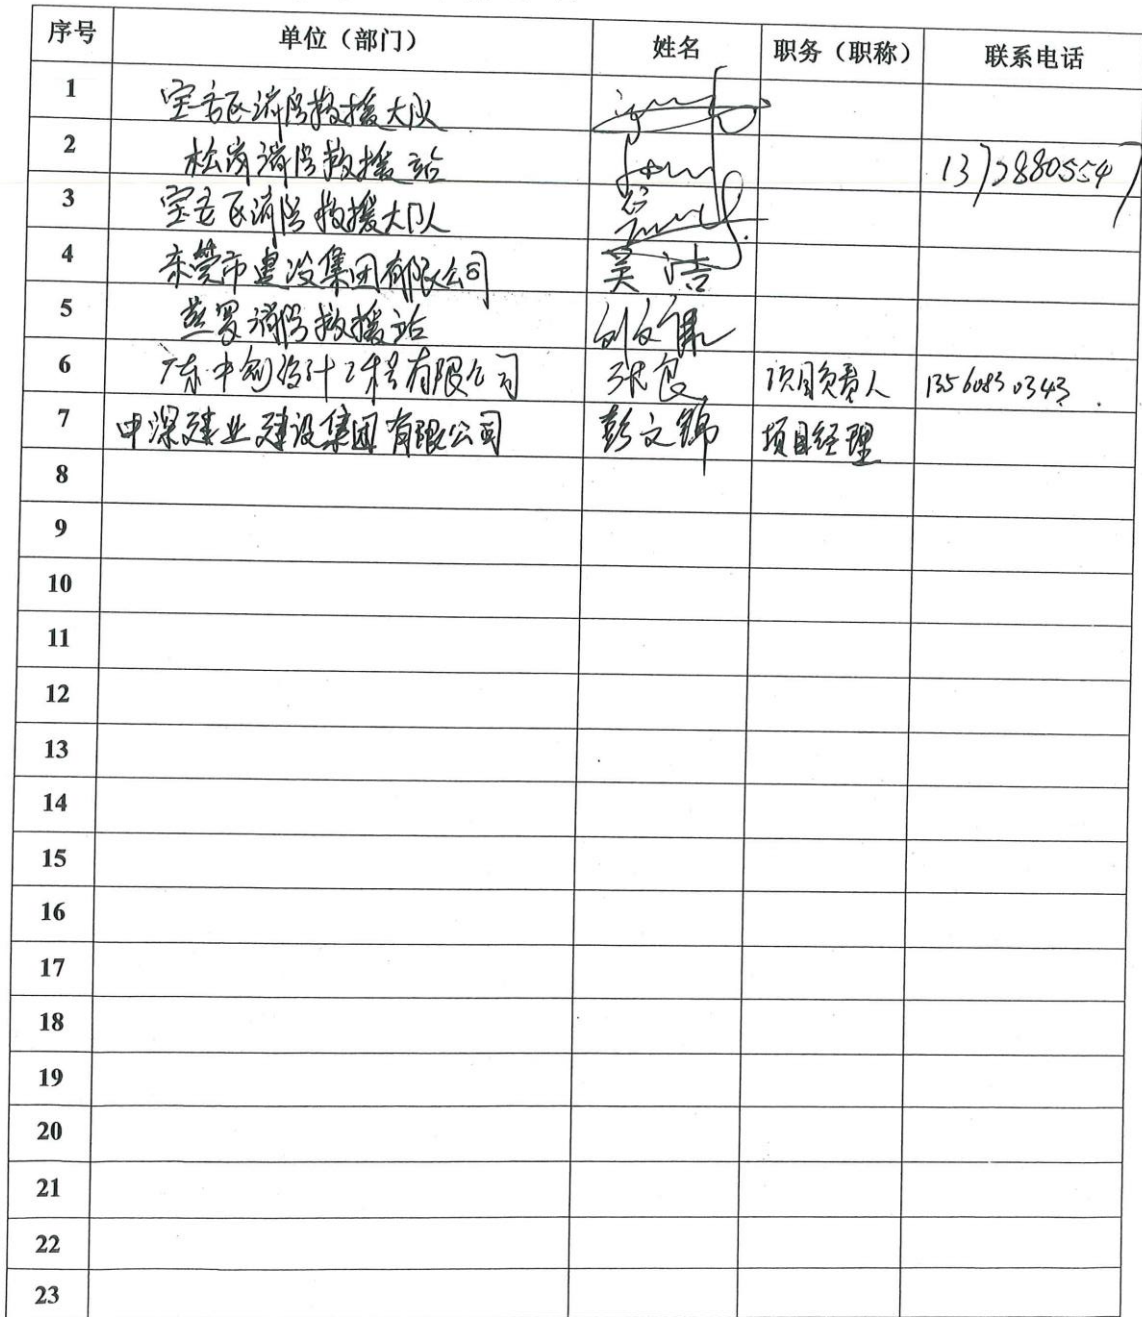 序号 单位（部门） 姓名 职务（职称） 联系电话
1 宝安区消防救援大队
2 松岗消防救援站 13728805547
3 宝安区消防救援大队
4 东莞市建设集团有限公司 吴洁
5 燕罗消防救援站
6 广东中创设计工程有限公司 张良 项目负责人 13560830343
7 中深建业建设集团有限公司 彭文锦 项目经理
8
9
10
11
12
13
14
15
16
17
18
19
20
21
22
23